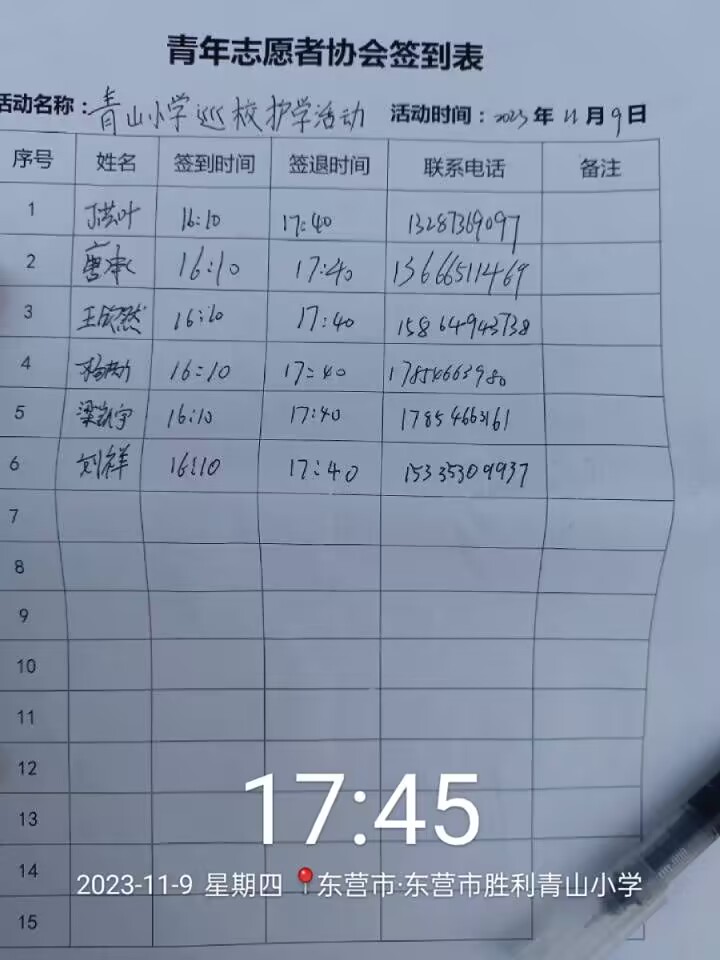 青年志愿者协会签到表
活动名称：青山小学巡校护学活动 活动时间：2023年11月9日
序号 姓名 签到时间 签退时间 联系电话 备注
1 丁洪叶 16:10 17:40 13287369097
2 16:10 17:40 13666511469
3 王欣然 16:10 17:40 15864943738
4 16:10 17:40 17854663980
5 梁凯宇 16:10 17:40 17854663161
6 刘祥 16:10 17:40 15335309937
7
8
9
10
11
12
13
14
15
17:45
2023-11-9 星期四 东营市·东营市胜利青山小学